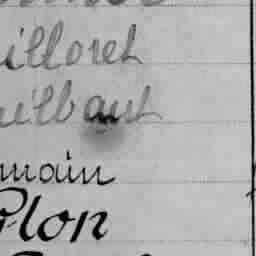 illoret
uilbaut
main
Plon